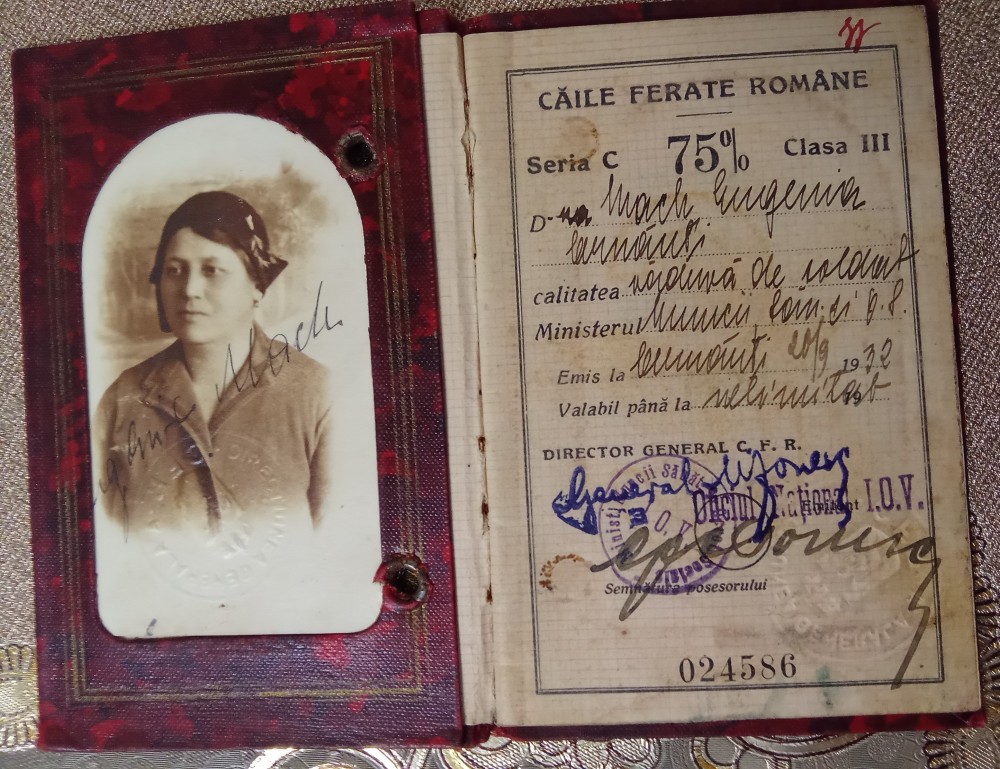 Eugenie Mach
CĂILE FERATE ROMÂNE
Seria C 75% Clasa III
D-na Mach Eugenia
Cernăuți
calitatea văduvă de soldat
Ministerul Muncii Săn. și O.S.
Emis la Cernăuți 20/9 1932
Valabil până la nelimitat
DIRECTOR GENERAL C. F. R.
General Ionescu
Oficiul Național I.O.V.
Semnătura posesorului
024586